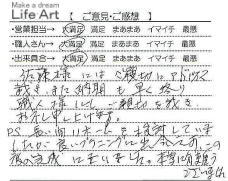 Make a dream
Life Art 【 ご意見・ご感想 】
・営業担当→ 大満足 満足 まあまあ イマイチ 最悪
・職人さん→ 大満足 満足 まあまあ イマイチ 最悪
・出来具合→ 大満足 満足 まあまあ イマイチ 最悪
佐藤様にはご親切にアドバイス
戴き、また納期も早く終り
職人様にもご親切を戴き
お礼申し上げます。
PS 長い間リホームを検討していま
したが 良いプランニングに出会えて
完成に至いました。本当に有難う
ございました